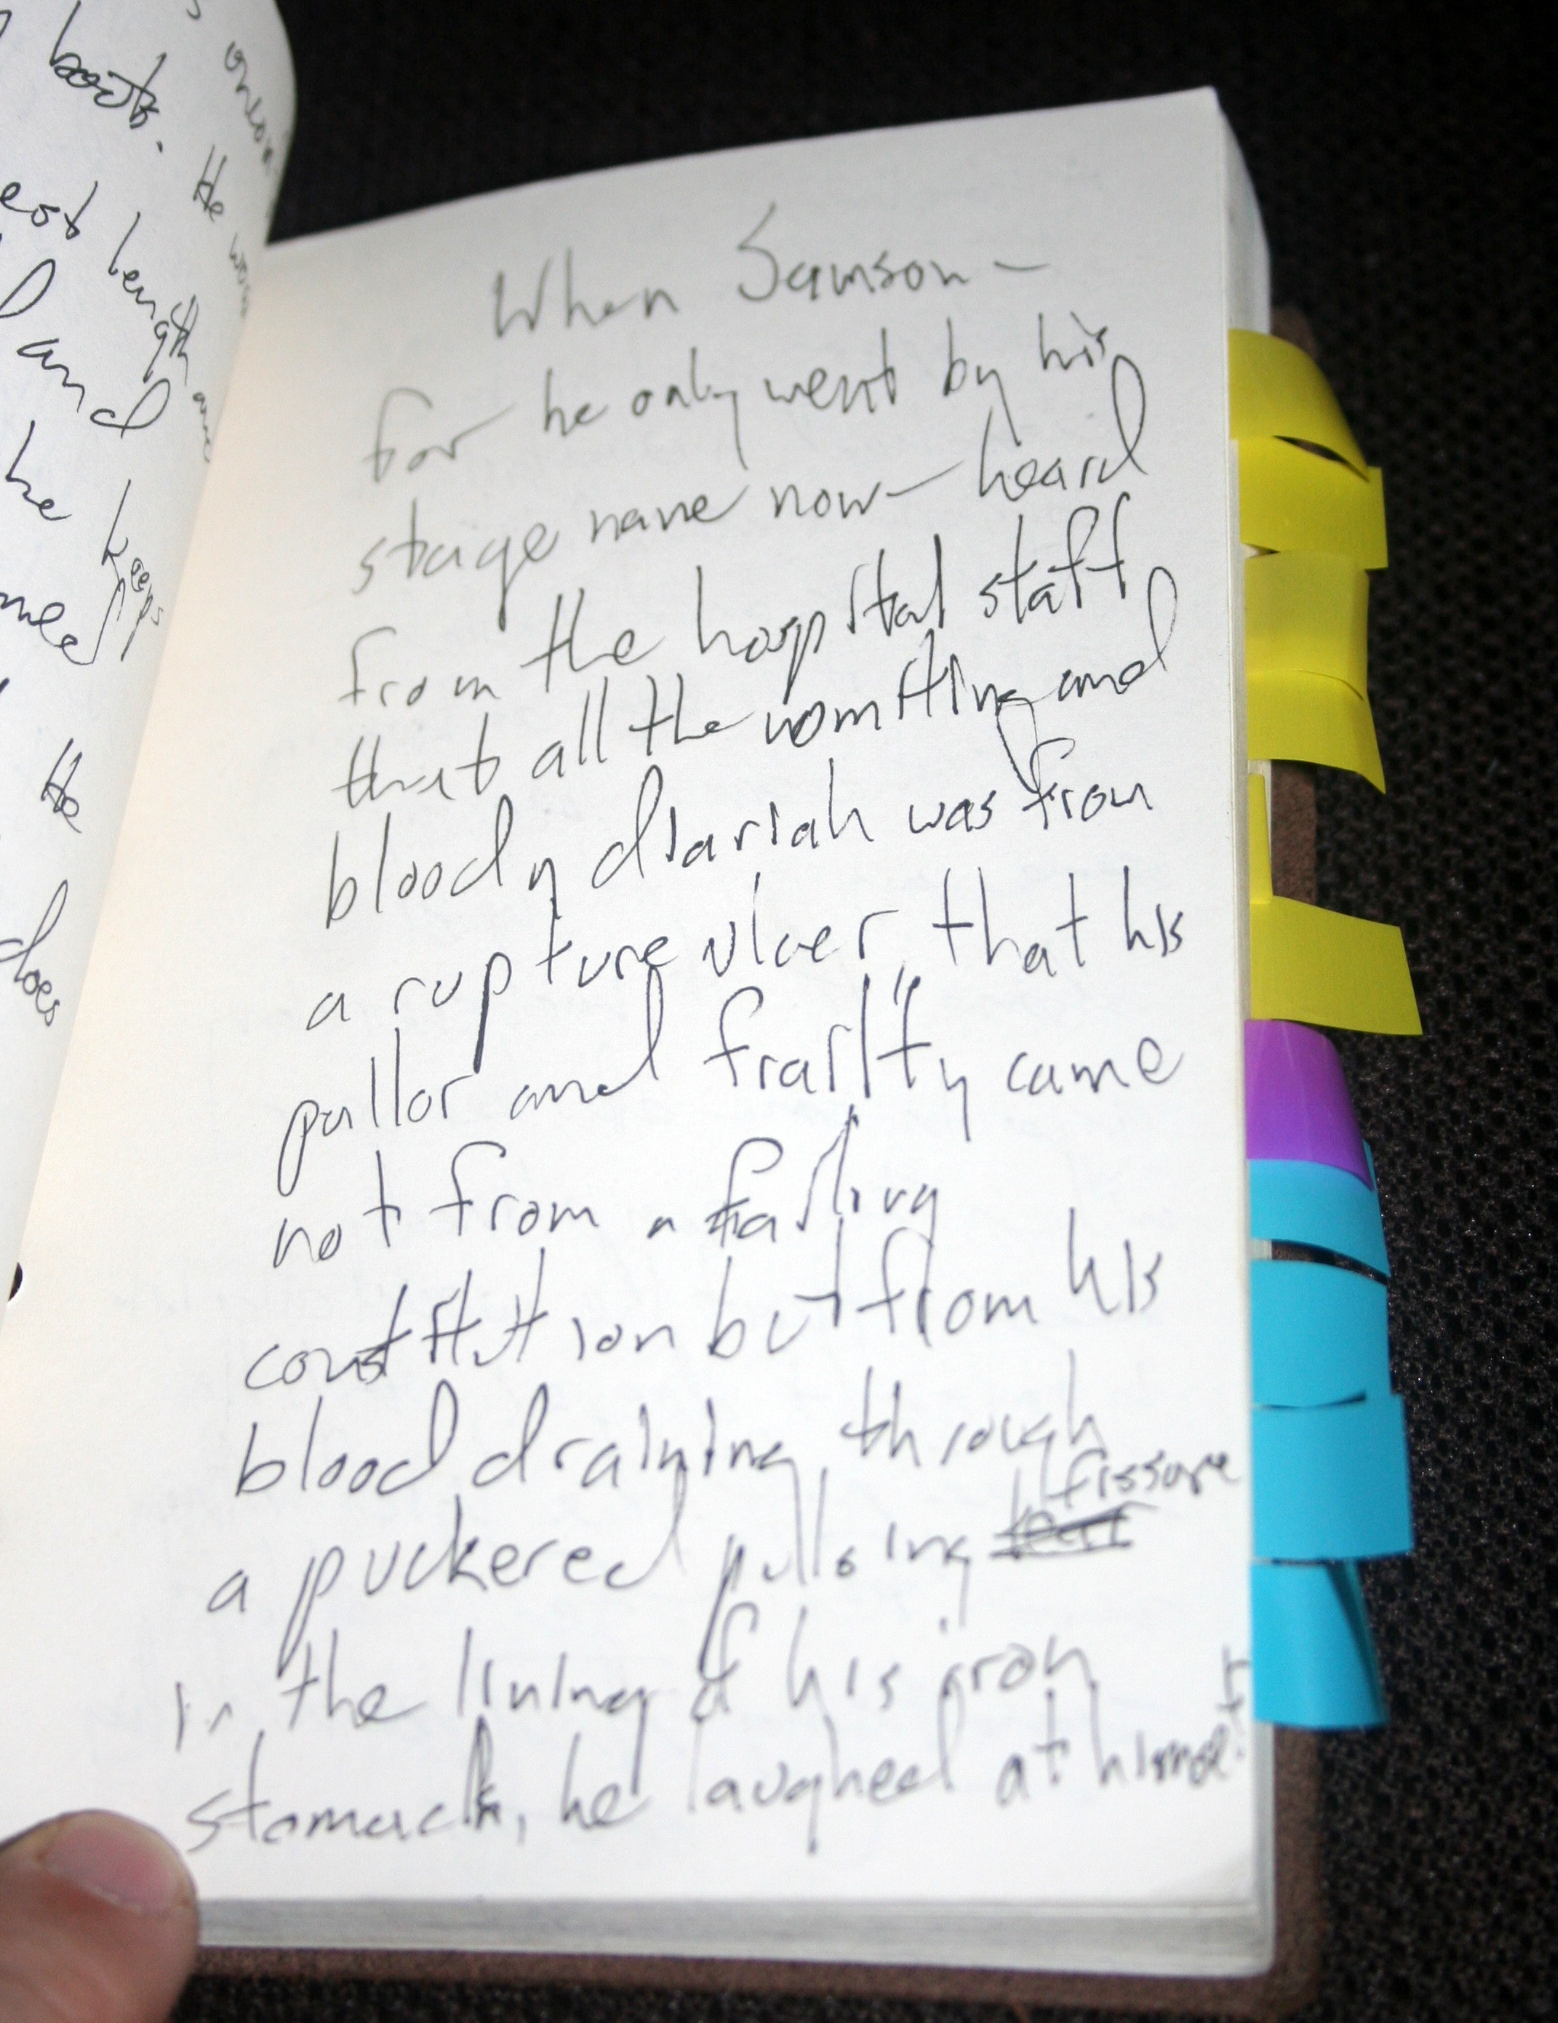 boots. He
est length
and
he keeps
He
does
When Samson —
for he only went by his
stage name now — heard
from the hospital staff
that all the vomiting and
bloody diariah was from
a rupture ulcer that his
pallor and frailty came
not from a failing
constitution but from his
blood draining through
a puckered pulsing fissure
in the lining of his iron
stomach, he laughed at himself